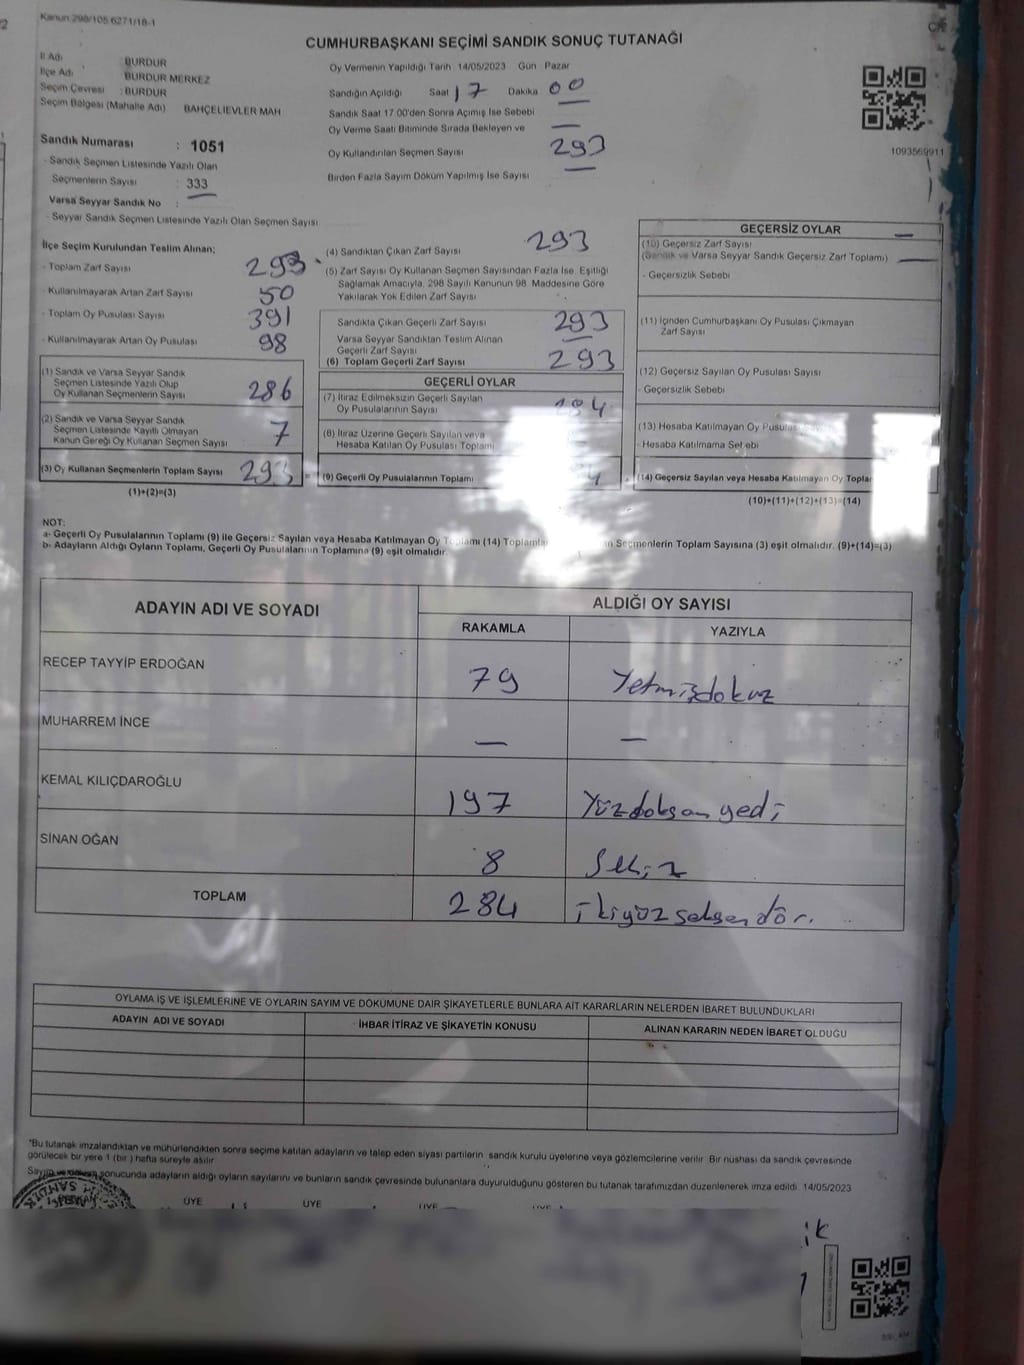 Kanun 298/105 6271/18-1
CUMHURBAŞKANI SEÇİMİ SANDIK SONUÇ TUTANAĞI
İl Adı BURDUR
İlçe Adı BURDUR MERKEZ
Seçim Çevresi : BURDUR
Seçim Bölgesi (Mahalle Adı) BAHÇELİEVLER MAH
Sandık Numarası : 1051
- Sandık Seçmen Listesinde Yazılı Olan
Seçmenlerin Sayısı : 333
Varsa Seyyar Sandık No : —
- Seyyar Sandık Seçmen Listesinde Yazılı Olan Seçmen Sayısı
Oy Vermenin Yapıldığı Tarih 14/05/2023 Gün Pazar
Sandığın Açıldığı Saat 17 Dakika 00
Sandık Saat 17:00'den Sonra Açılmış İse Sebebi —
Oy Verme Saati Bitiminde Sırada Bekleyen ve —
Oy Kullandırılan Seçmen Sayısı 293
Birden Fazla Sayım Döküm Yapılmış İse Sayısı —
1093569911
İlçe Seçim Kurulundan Teslim Alınan;
- Toplam Zarf Sayısı 293
- Kullanılmayarak Artan Zarf Sayısı 50
- Toplam Oy Pusulası Sayısı 391
- Kullanılmayarak Artan Oy Pusulası 98
(1) Sandık ve Varsa Seyyar Sandık
Seçmen Listesinde Yazılı Olup
Oy Kullanan Seçmenlerin Sayısı 286
(2) Sandık ve Varsa Seyyar Sandık
Seçmen Listesinde Kayıtlı Olmayan
Kanun Gereği Oy Kullanan Seçmen Sayısı 7
(3) Oy Kullanan Seçmenlerin Toplam Sayısı 293
(1)+(2)=(3)
(4) Sandıktan Çıkan Zarf Sayısı 293
(5) Zarf Sayısı Oy Kullanan Seçmen Sayısından Fazla İse, Eşitliği
Sağlamak Amacıyla, 298 Sayılı Kanunun 98. Maddesine Göre
Yakılarak Yok Edilen Zarf Sayısı
Sandıkta Çıkan Geçerli Zarf Sayısı 293
Varsa Seyyar Sandıktan Teslim Alınan
Geçerli Zarf Sayısı —
(6) Toplam Geçerli Zarf Sayısı 293
GEÇERLİ OYLAR
(7) İtiraz Edilmeksizin Geçerli Sayılan
Oy Pusulalarının Sayısı 284
(8) İtiraz Üzerine Geçerli Sayılan veya
Hesaba Katılan Oy Pusulası Toplamı
(9) Geçerli Oy Pusulalarının Toplamı 4
GEÇERSİZ OYLAR
(10) Geçersiz Zarf Sayısı —
(Sandık ve Varsa Seyyar Sandık Geçersiz Zarf Toplamı) —
- Geçersizlik Sebebi
(11) İçinden Cumhurbaşkanı Oy Pusulası Çıkmayan
Zarf Sayısı
(12) Geçersiz Sayılan Oy Pusulası Sayısı
- Geçersizlik Sebebi
(13) Hesaba Katılmayan Oy Pusulası
- Hesaba Katılmama Sebebi
(14) Geçersiz Sayılan veya Hesaba Katılmayan Oy
(10)+(11)+(12)+(13)=(14)
NOT:
a- Geçerli Oy Pusulalarının Toplamı (9) ile Geçersiz Sayılan veya Hesaba Katılmayan Oy Toplamı (14) Seçmenlerin Toplam Sayısına (3) eşit olmalıdır. (9)+(14)=(3)
b- Adayların Aldığı Oyların Toplamı, Geçerli Oy Pusulalarının Toplamına (9) eşit olmalıdır.
ADAYIN ADI VE SOYADI ALDIĞI OY SAYISI
RAKAMLA YAZIYLA
RECEP TAYYİP ERDOĞAN 79 Yetmişdokuz
MUHARREM İNCE — —
KEMAL KILIÇDAROĞLU 197 Yüzdoksanyedi
SİNAN OĞAN 8 Sekiz
TOPLAM 284 ikiyüzseksendör.
OYLAMA İŞ VE İŞLEMLERİNE VE OYLARIN SAYIM VE DÖKÜMÜNE DAİR ŞİKAYETLERLE BUNLARA AİT KARARLARIN NELERDEN İBARET BULUNDUKLARI
ADAYIN ADI VE SOYADI İHBAR İTİRAZ VE ŞİKAYETİN KONUSU ALINAN KARARIN NEDEN İBARET OLDUĞU
*Bu tutanak imzalandıktan ve mühürlendikten sonra seçime katılan adayların ve talep eden siyasi partilerin sandık kurulu üyelerine veya gözlemcilerine verilir. Bir nüshası da sandık çevresinde
görülecek bir yere 1 (bir ) hafta süreyle asılır
Sayım ve döküm sonucunda adayların aldığı oyların sayılarını ve bunların sandık çevresinde bulunanlara duyurulduğunu gösteren bu tutanak tarafımızdan düzenlenerek imza edildi. 14/05/2023
ÜYE ÜYE ÜYE